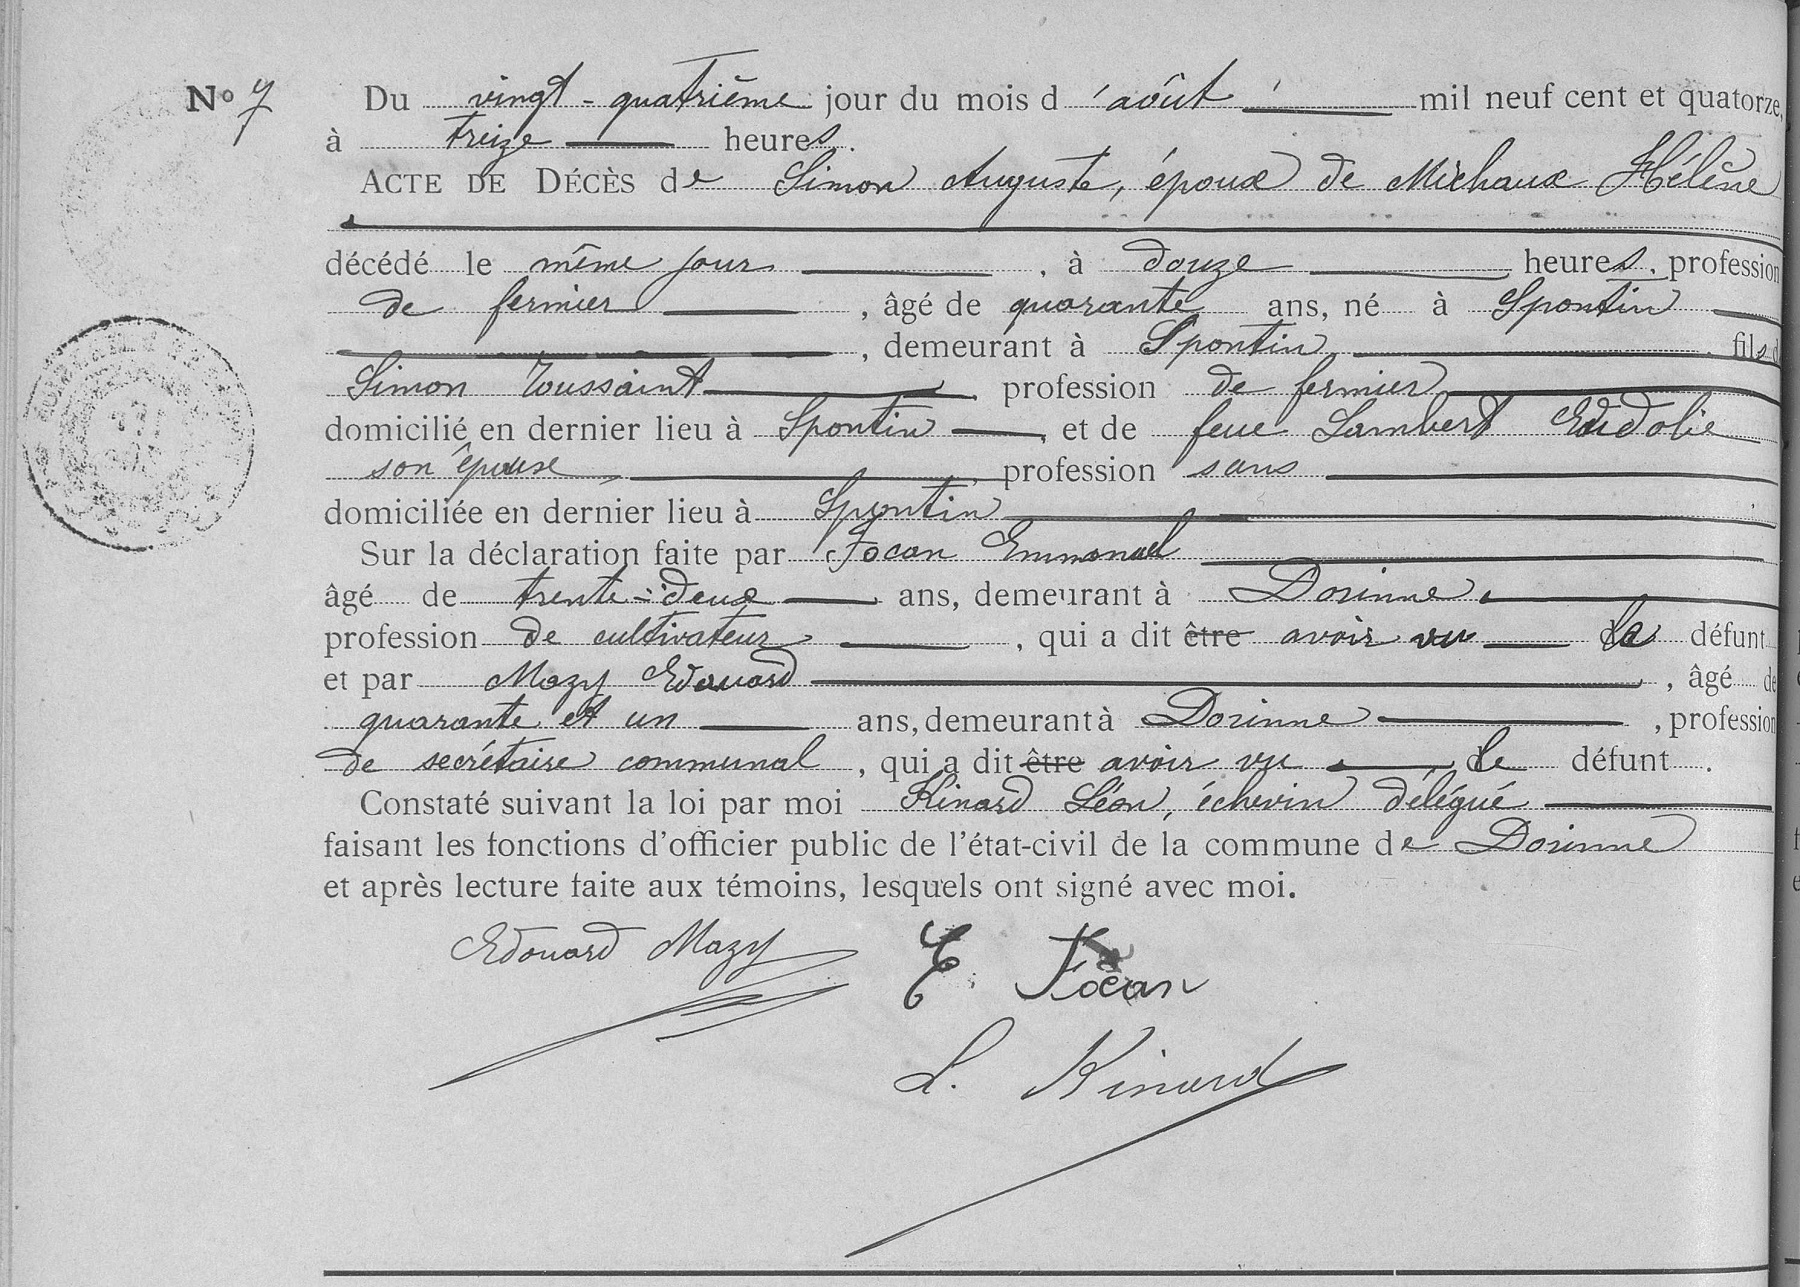 Nº 7 Du vingt-quatrième jour du mois d'août mil neuf cent et quatorze,
à treize heures.
ACTE DE DÉCÈS de Simon Auguste, époux de Michaux Hélène
décédé le même jour, à douze heures, profession
de fermier, âgé de quarante ans, né à Spontin
, demeurant à Spontin, fils d
Simon Toussaint, profession de fermier
domicilié en dernier lieu à Spontin, et de feue Lambert
son épouse, profession sans
domiciliée en dernier lieu à Spontin
Sur la déclaration faite par Focan Emmanuel
âgé de trente-deux ans, demeurant à Dorinne
profession de cultivateur, qui a dit être avoir vu le défunt
et par Mazy Edouard, âgé de
quarante et un ans, demeurant à Dorinne, profession
de secrétaire communal, qui a dit être avoir vu le défunt.
Constaté suivant la loi par moi Kinard Léon, échevin délégué
faisant les fonctions d'officier public de l'état-civil de la commune de Dorinne
et après lecture faite aux témoins, lesquels ont signé avec moi.
Edouard Mazy E. Focan
L. Kinard